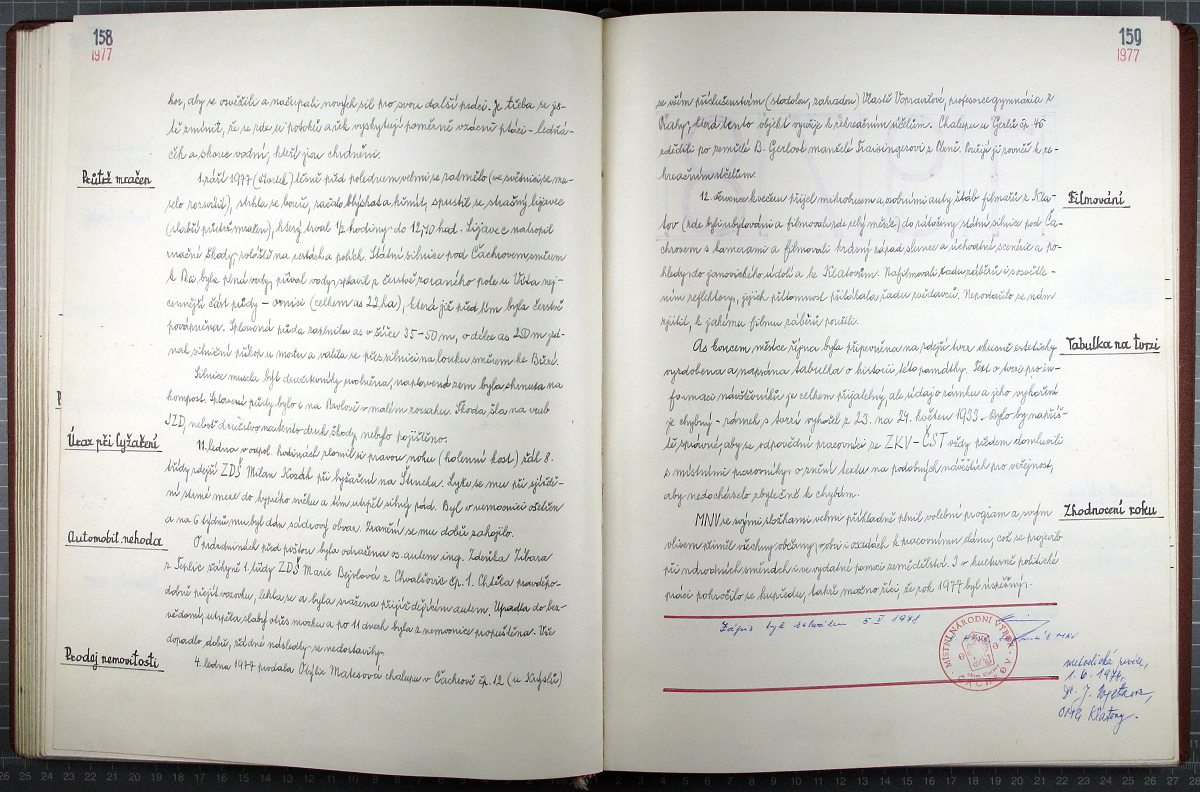 158
1977
ku, aby se osvěžili a načerpali nových sil pro svou další práci. Je třeba se je-
tě zmínit, že se zde u potoků a řek vyskytují poměrně vzácní ptáci - ledňá-
ček a skorec vodní, kteří jsou chráněni.
Průtrž mračen
1. září 1977 (čtvrtek) těsně před polednem velmi se zatmělo (ve světnici se mu-
selo rozsvítit), strhla se bouře, začalo blýskat a hřmít, spustil se strašný lijavec
(slabší průtrž mračen), který trval 1/2 hodiny do 12,40 hod. Lijavec natropil
značné škody, zvláště na cestách a polích. Státní silnice pod Čachrovem směrem
k Bii byla plná vody, příval vody splavil z čerstvě zoraného pole u Ústa nej-
cennější část půdy - ornici (celkem as 22 ha), která již před tím byla čerstvě
povápněna. Splavená půda zaplnila as v šíře 35-50 m, o délce as 250 m jed-
nak silniční příkop u mostu a valila se přes silnici na louku směrem ke Březí.
Silnice musela být družstevníky uvolněna, naplavená zem byla shrnuta na
kompost. Splavení půdy bylo i na Pavlově v malém rozsahu. Škoda šla na vrub
JZD, neboť družstvo na tento druh škody nebylo pojištěno.
Úraz při lyžaření
11. ledna v odpol. hodinách zlomil si pravou nohu (holenní kost) žák 8.
třídy zdejší ZDŠ Milan Kozák při lyžaření na Štucku. Lyže se mu při sjíždě-
ní strmé meze do sypkého sněhu a tím utrpěl silný pád. Byl v nemocnici ošetřen
a na 6 týdnů mu byl dán sádrový obvaz. Zranění se mu dobře zahojilo.
Automobil. nehoda
O prázdninách před poštou byla odražena os. autem ing. Zdeňka Zibara
z Teplic žákyně 1. třídy ZDŠ Marie Bejvlová z Chvalšovic čp. 1. Chtěla pravděpo-
dobně přejít vozovku, lekla se a byla sražena přijíždějícím autem. Upadla do bez-
vědomí, utrpěla slabý otřes mozku a po 11 dnech byla z nemocnice propuštěna. Vše
dopadlo dobře, žádné následky se nedostavily.
Prodej nemovitosti
4. ledna 1977 prodala Otýlie Matesová chalupu v Čachrově čp. 12 (u Kryslů)
159
1977
se vším příslušenstvím (stodolou, zahradou) Vlastě Vopravilové, profesorce gymnázia z
Prahy, která tento objekt využije k rekreačním účelům. Chalupu u Gerlů čp. 45
zdědili po zemřelé B. Gerlové manželé Fraisingerovi z Plzně. Použijí ji rovněž k re-
kreačním účelům.
Filmování
12. července k večeru přijel mikrobusem a osobními auty štáb filmařů z Kla-
tov (zde byli ubytováni a filmovali zde celý měsíc) do zátočiny státní silnice pod Ča-
chrovem s kamerami a filmovali krásný západ slunce a úchvatné scenérie a po-
hledy do janovického údolí a ke Klatovům. Nafilmovali řadu záběrů i s osvětle-
ním reflektory, jejich přítomnost přilákala řadu zvědavců. Nepodařilo se nám
zjistit, k jakému filmu záběrů použili.
Tabulka na tvrzi
As koncem měsíce října byla připevněna na zdejší tvrz vkusně esteticky
vyzdobena a napsána tabulka o historii této památky. Text o tvrzi pro in-
formaci návštěvníků je celkem přijatelný, ale údaj o zámku a jeho vyhoření
je chybný - zámek s tvrzí vyhořel z 23. na 24. květen 1933. Bylo by napříš-
tě správné, aby se odpovědní pracovníci ze ZKV-ČST vždy předem domluvili
s místními pracovníky o znění textu na podobných návěstích pro veřejnost,
aby nedocházelo zbytečně k chybám.
Zhodnocení roku
MNV se svými složkami velmi příkladně plnil volební program a svým
vlivem přiměl všechny občany, zvláště i v osadách k pracovnímu elánu, což se projevilo
při národních směnách i ve vydatné pomoci zemědělství. I v kulturně politické
práci pokročilo se kupředu, takže možno říci, že rok 1977 byl úspěšný.
Zápis byl schválen 5.II 1978
MÍSTNÍ NÁRODNÍ VÝBOR
ČACHROV
metodická revize,
1. 6. 1978.
Klatovy.